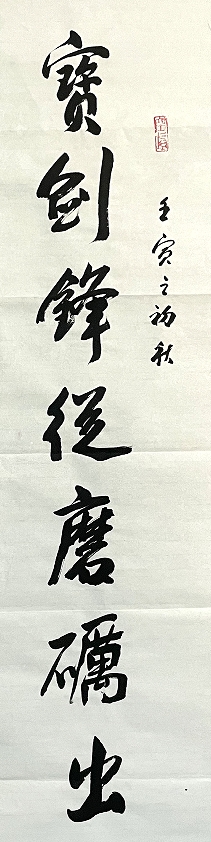 壬寅之初秋
寶劍鋒從磨礪出